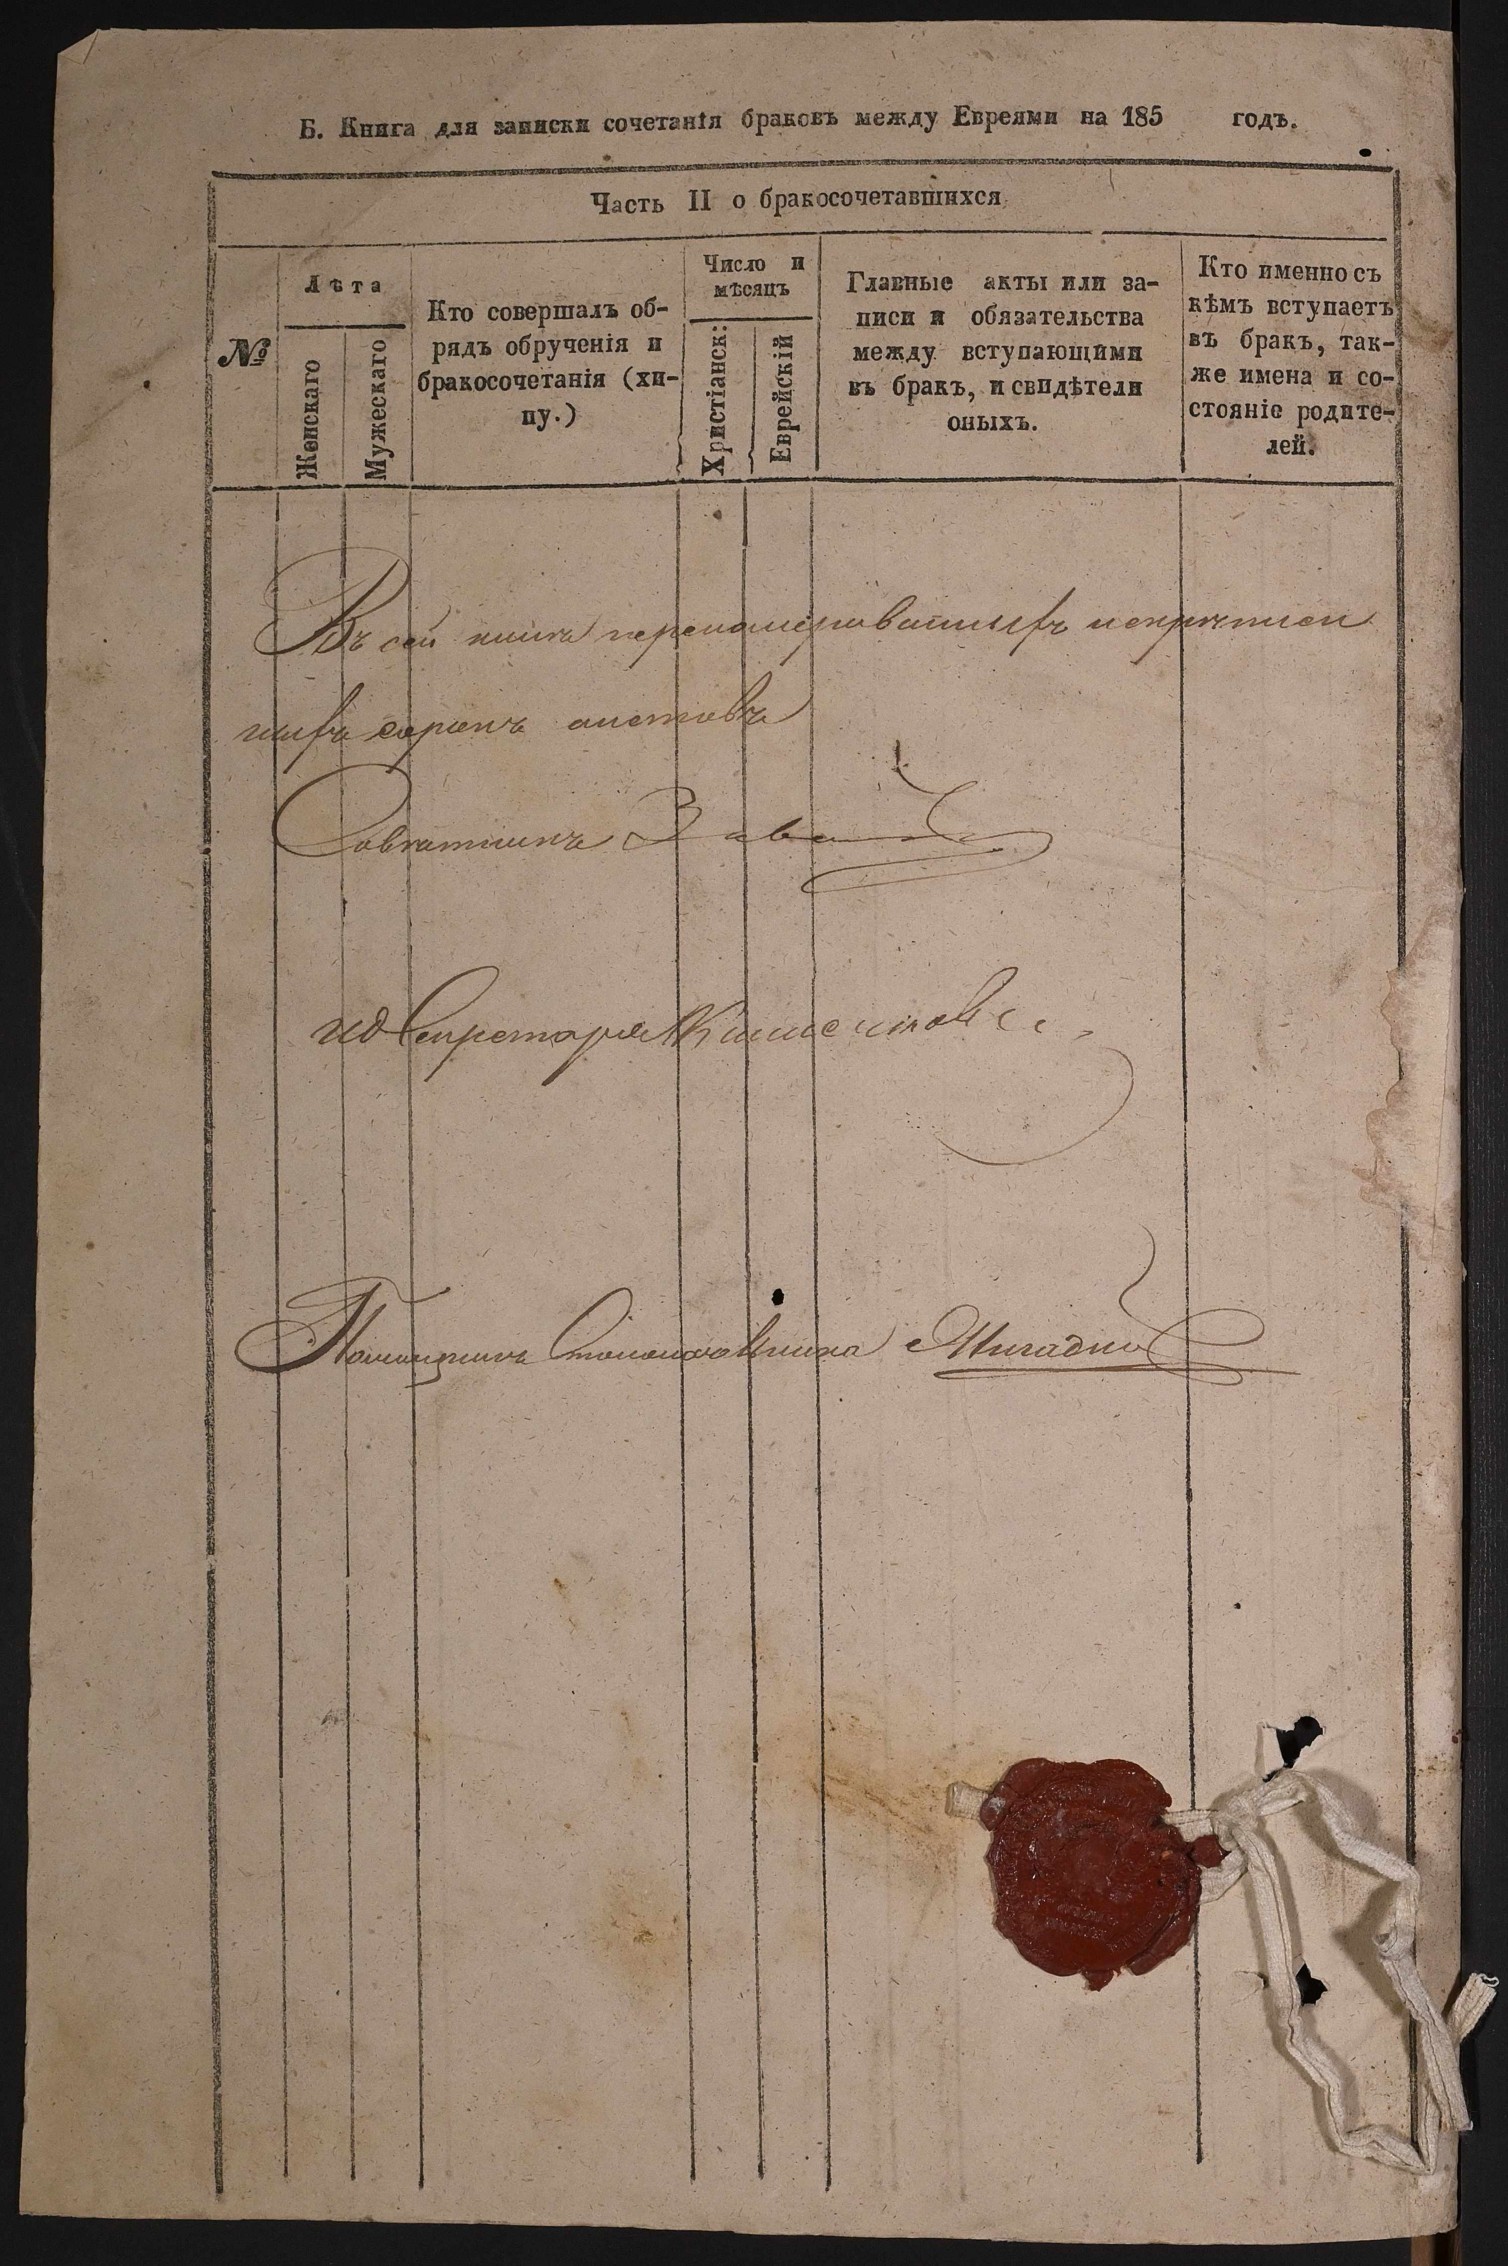 Б. Книга для записки сочетанія браковъ между Евреями на 185 годъ.
Часть II о бракосочетавшихся
№
Лѣта
Женскаго
Мужескаго
Кто совершалъ об-
рядъ обрученія и
бракосочетанія (хи-
пу.)
Число и
мѣсяцъ
Христіанск:
Еврейскій
Главные акты или за-
писи и обязательства
между вступающими
въ бракъ, и свидѣтели
оныхъ.
Кто именно съ
кѣмъ вступаетъ
въ бракъ, так-
же имена и со-
стояніе родите-
лей.
Въ сей книгѣ перенумерованныхъ и скрѣплен
ныхъ сорокъ листовъ
Совѣтникъ
ид Секретаря
Помощникъ Столоначальника